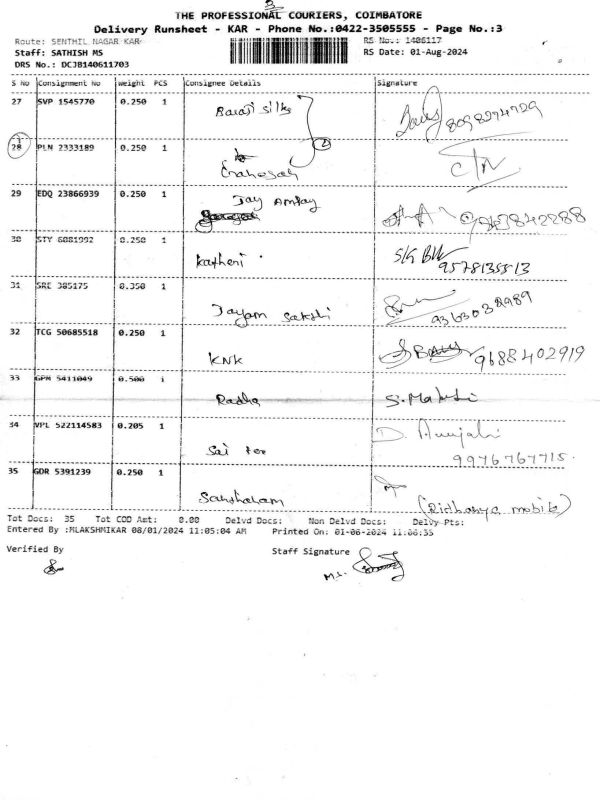 THE PROFESSIONAL COURIERS, COIMBATORE
Delivery Runsheet - KAR - Phone No.:0422-3505555 - Page No.:3
Route: SENTHIL NAGAR-KAR
RS No.: 1406117
Staff: SATHISH MS
RS Date: 01-Aug-2024
DRS No.: DCJB140611703
S No Consignment No weight PCS Consignee Details Signature
27 SVP 1545770 0.250 1 Barati Silks 8098274729
28 PLN 2333189 0.250 1
29 EDQ 23866939 0.250 1 Jay
30 STY 6081992 0.250 1 Katheni 9578135513
31 SRE 385175 0.350 1 Jayam Sakthi
32 TCG 50685518 0.250 1 KNK 9688402919
33 GPM 5411049 0.500 1 Radha
34 VPL 522114583 0.205 1 Sai D.
9976767715.
35 GDR 5391239 0.250 1 (Ridhanya mobile)
Tot Docs: 35 Tot COD Amt: 0.00 Delvd Docs: Non Delvd Docs: Delvy-Pts:
Entered By :MLAKSHMIKAR 08/01/2024 11:05:04 AM Printed On: 01-08-2024 11:06:35
Verified By Staff Signature